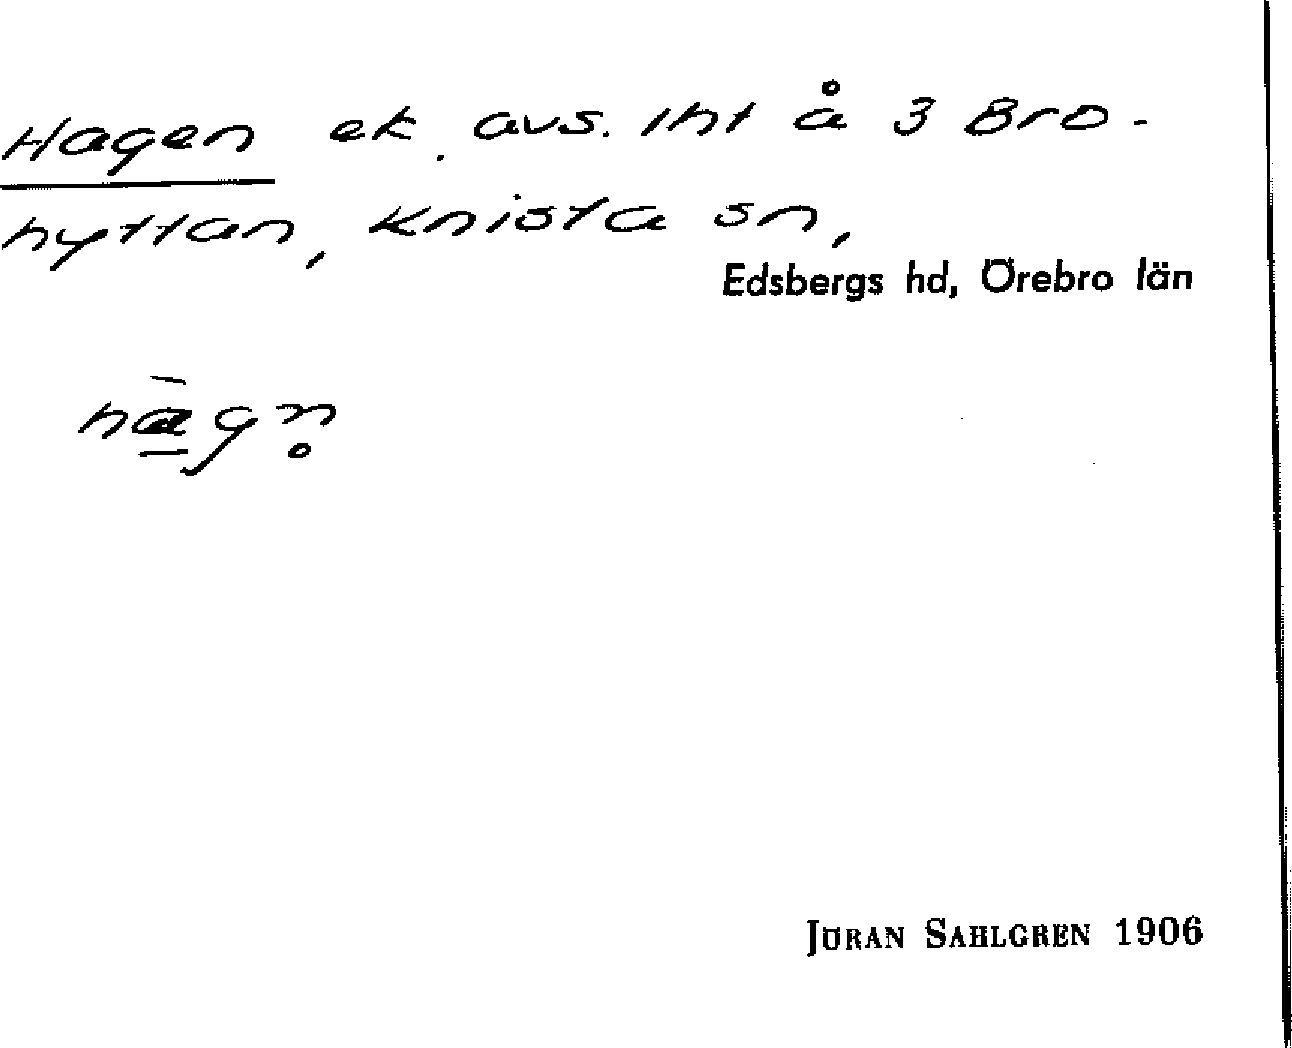 Hagen ek. avs. lht å 3 Bro-
hyttan, Knista sn,
Edsbergs hd, Örebro län
hàgn̥
JÖRAN SAHLGREN 1906